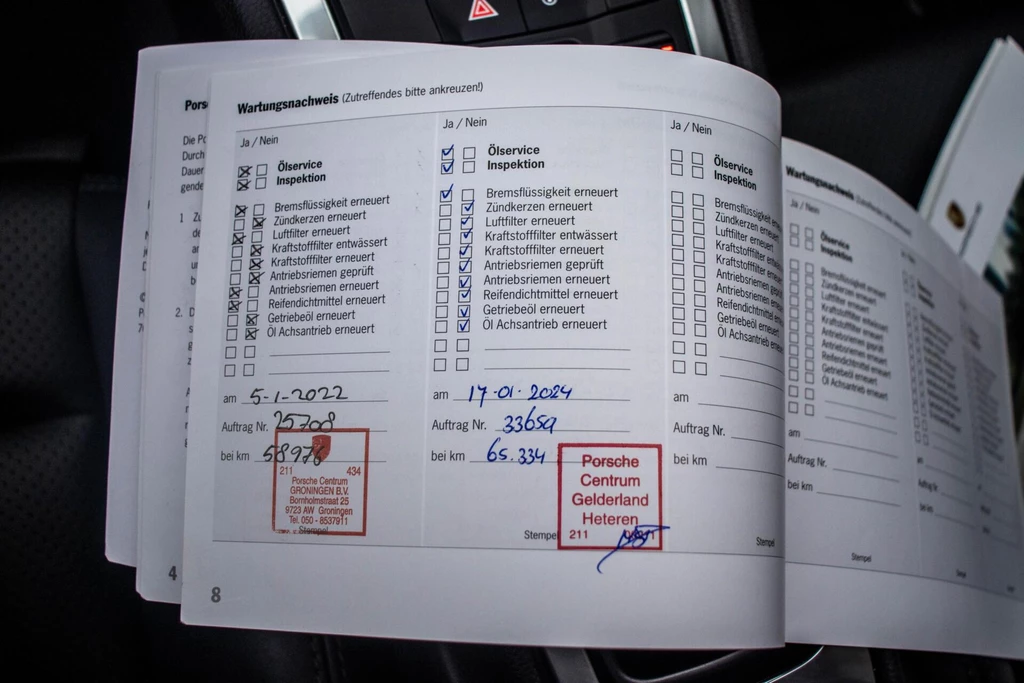 Wartungsnachweis (Zutreffendes bitte ankreuzen!)
Ja / Nein
Ölservice
Inspektion
Bremsflüssigkeit erneuert
Zündkerzen erneuert
Luftfilter erneuert
Kraftstofffilter entwässert
Kraftstofffilter erneuert
Antriebsriemen geprüft
Antriebsriemen erneuert
Reifendichtmittel erneuert
Getriebeöl erneuert
Öl Achsantrieb erneuert
am 5-1-2022
Auftrag Nr. 25708
bei km 58976
211 434
Porsche Centrum
GRONINGEN B.V.
Bornholmstraat 25
9723 AW Groningen
Tel. 050 - 8537911
Stempel
Ja / Nein
Ölservice
Inspektion
Bremsflüssigkeit erneuert
Zündkerzen erneuert
Luftfilter erneuert
Kraftstofffilter entwässert
Kraftstofffilter erneuert
Antriebsriemen geprüft
Antriebsriemen erneuert
Reifendichtmittel erneuert
Getriebeöl erneuert
Öl Achsantrieb erneuert
am 17-01-2024
Auftrag Nr.
bei km 65.334
Stempel
Porsche
Centrum
Gelderland
Heteren
211
Ja / Nein
Ölservice
Inspektion
Bremsflüssigkeit
Zündkerzen erneuert
Luftfilter erneuert
Kraftstofffilter
Kraftstofffilter
Antriebsriemen
Antriebsriemen
Reifendichtmittel
Getriebeöl erneuert
Öl Achsantrieb
am
Auftrag Nr.
bei km
Stempel
8
4
Wartungsnachweis (Zutreffendes bitte
Ja / Nein
Ölservice
Inspektion
Bremsflüssigkeit erneuert
Zündkerzen erneuert
Luftfilter erneuert
Kraftstofffilter entwässert
Kraftstofffilter erneuert
Antriebsriemen geprüft
Antriebsriemen erneuert
Reifendichtmittel erneuert
Getriebeöl erneuert
Öl Achsantrieb erneuert
am
Auftrag Nr.
bei km
Stempel